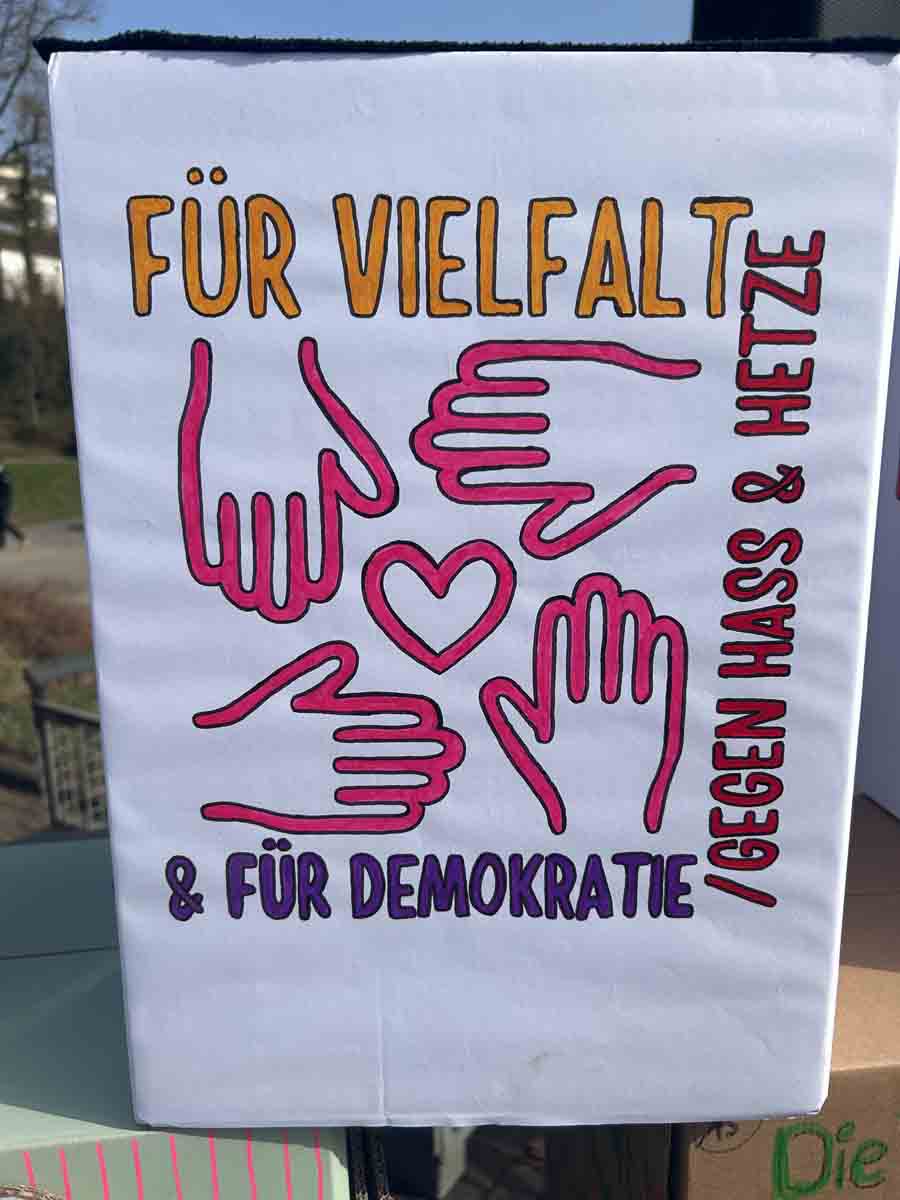 FÜR VIELFALT
& FÜR DEMOKRATIE
/GEGEN HASS & HETZE
Die